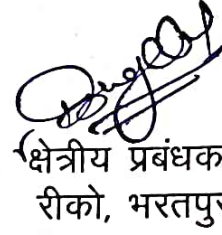 क्षेत्रीय प्रबंधक
रीको, भरतपुर